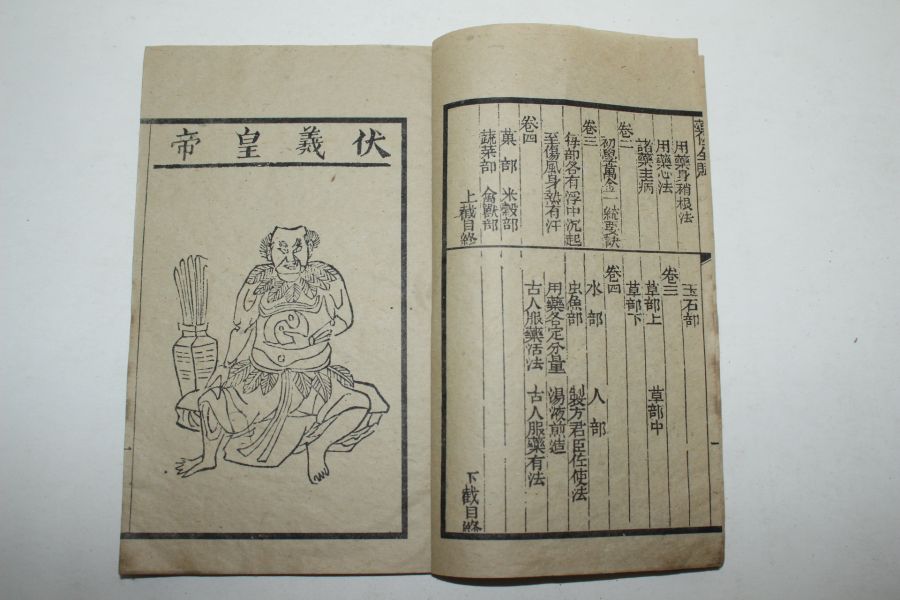 用藥身稍根法
用藥心法
諸藥主病
卷二
初學萬金一統要訣
卷三
每部各有浮中沉起
至傷風身熱有汗
卷四
菓部 米穀部
蔬菜部 禽獸部
上截目終
玉石部
卷三
草部上 草部中
草部下
卷四
水部 人部
虫魚部 製方君臣佐使法
用藥各定分量 湯液煎造
古人服藥活法 古人服藥有法
下截目終
伏羲皇帝